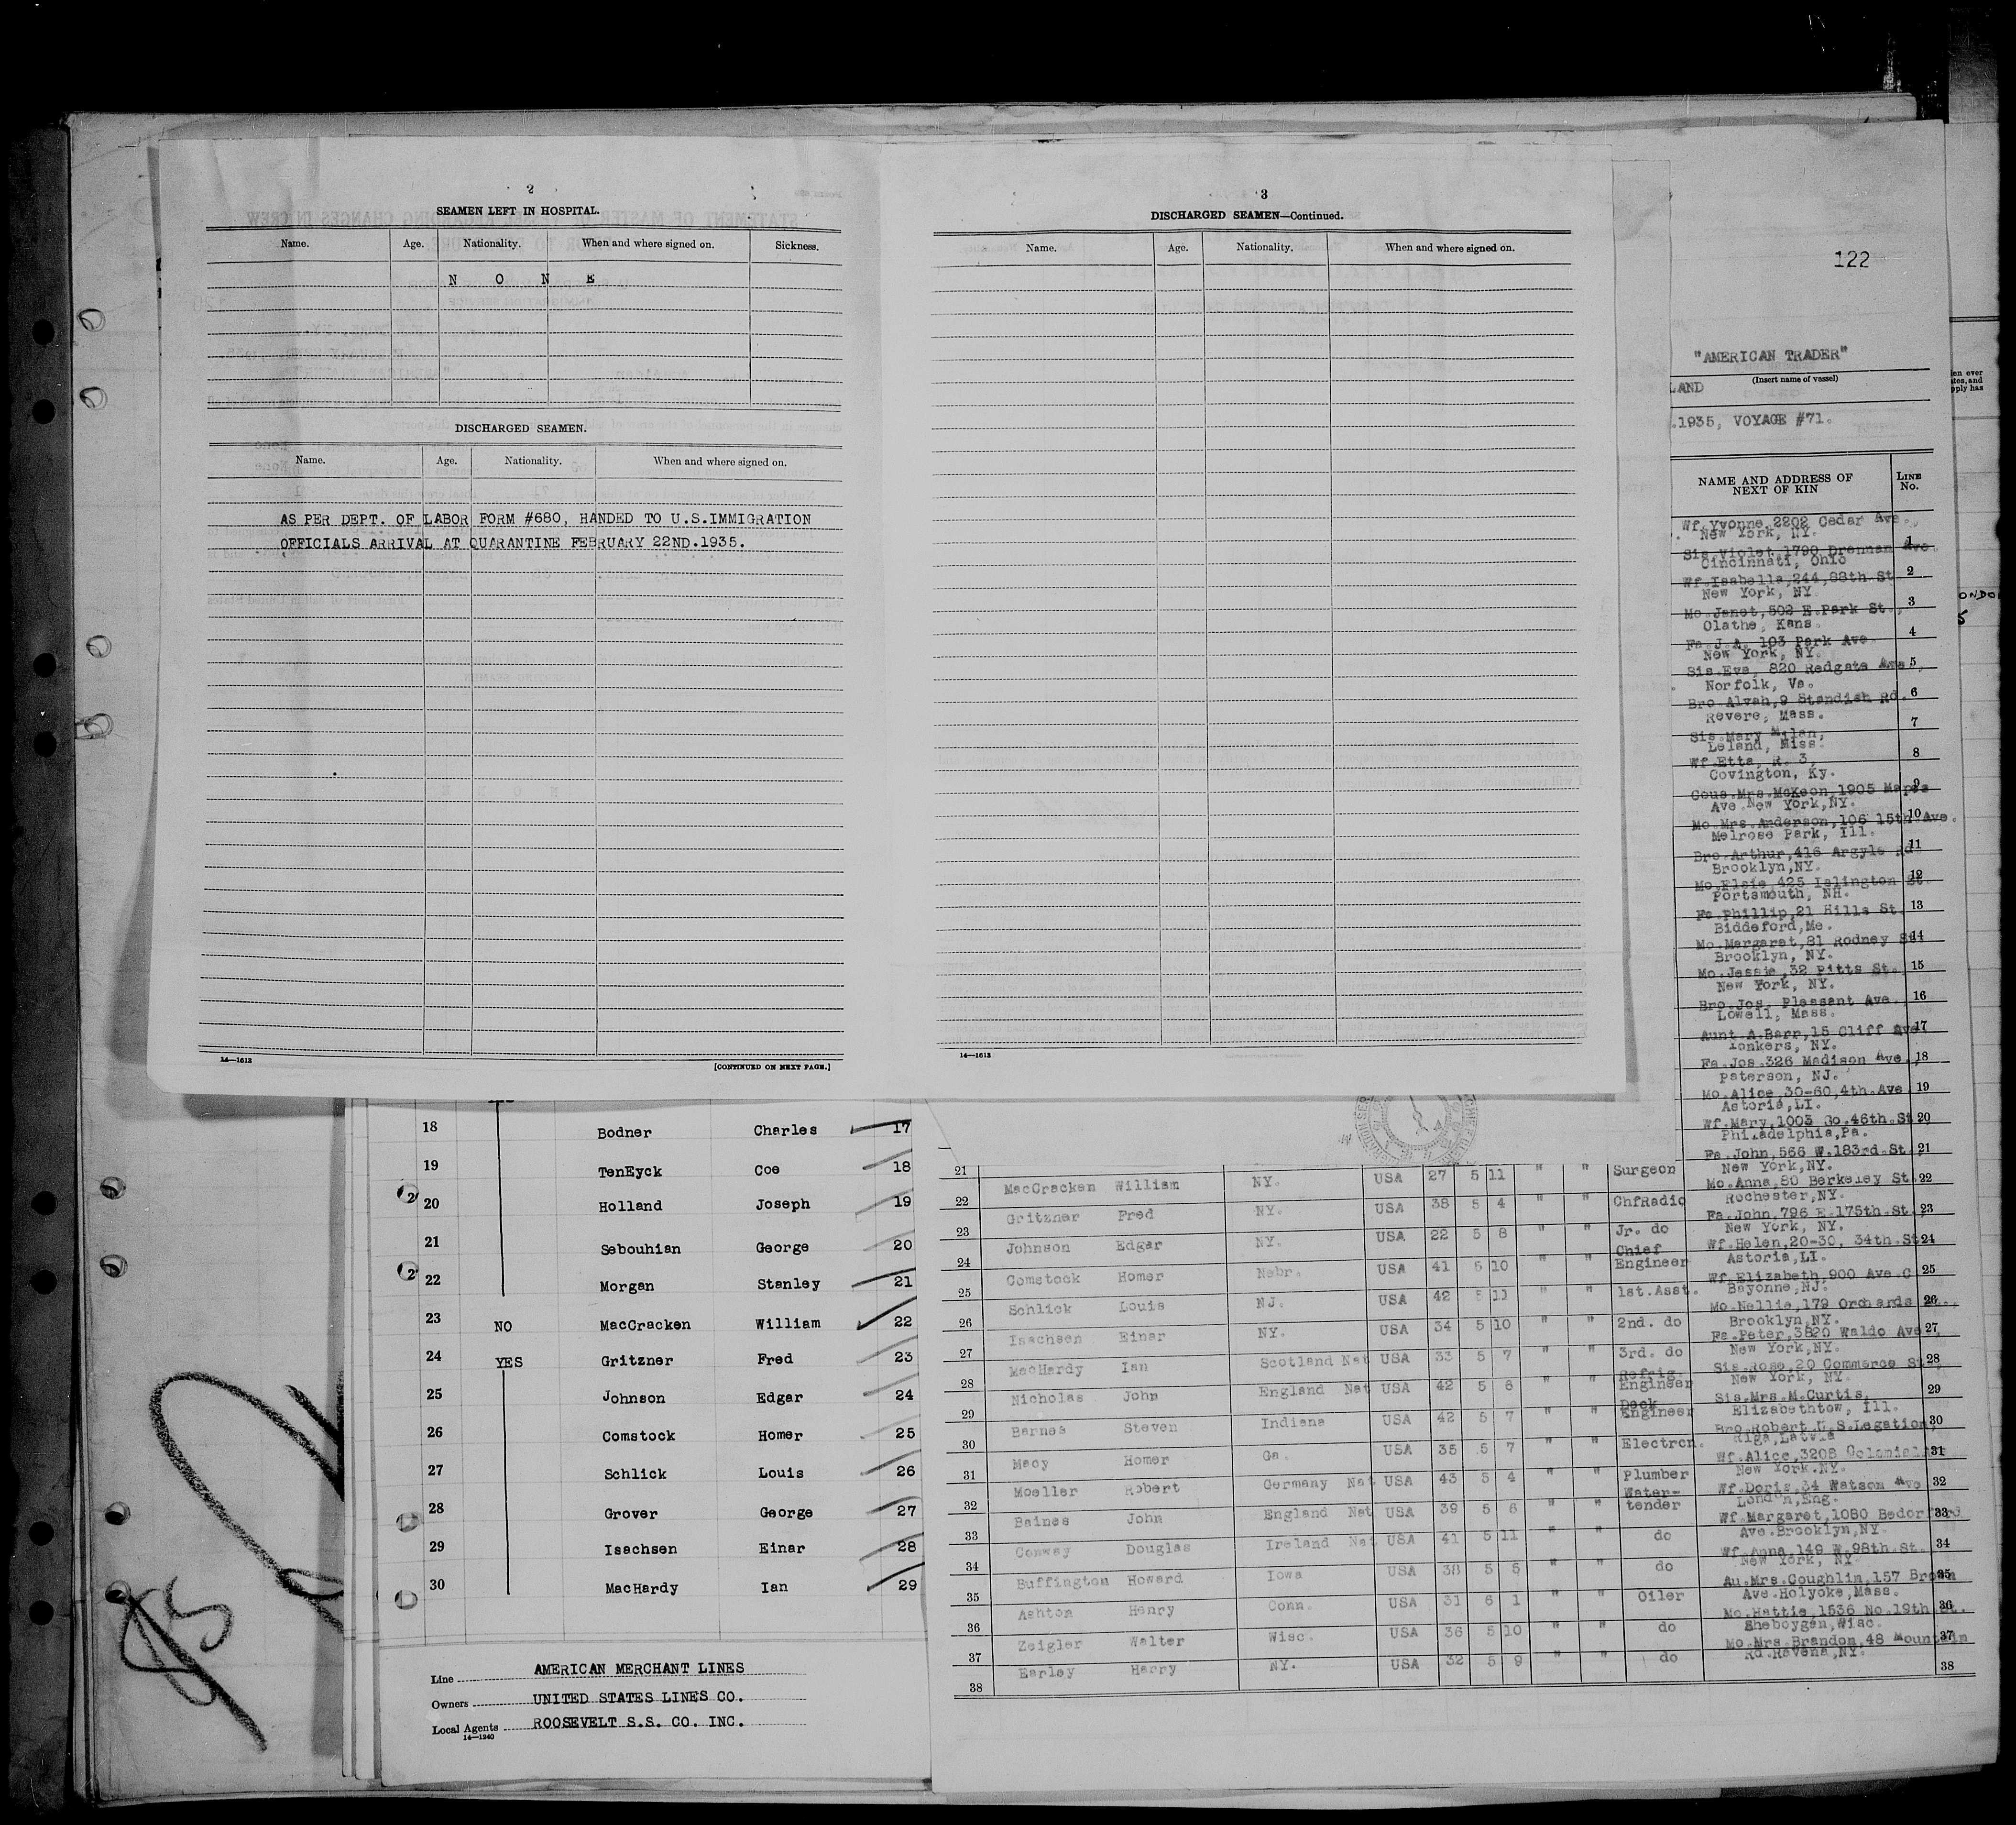 2
SEAMEN LEFT IN HOSPITAL.
Name. Age. Nationality. When and where signed on. Sickness.
N O N E
DISCHARGED SEAMEN.
Name. Age. Nationality. When and where signed on.
AS PER DEPT. OF LABOR FORM #680, HANDED TO U.S.IMMIGRATION
OFFICIALS ARRIVAL AT QUARANTINE FEBRUARY 22ND.1935.
14—1612
[CONTINUED ON NEXT PAGE.]
3
DISCHARGED SEAMEN—Continued.
Name. Age. Nationality. When and where signed on.
14—1612
122
"AMERICAN TRADER"
(Insert name of vessel)
LAND
.1935, VOYAGE #71.
NAME AND ADDRESS OF
NEXT OF KIN
LINE
No.
Wf.Yvonne,2202 Cedar Ave.
New York, NY.
1
Sis.Violet,1790 Drennan Ave.
Cincinnati, Ohio
2
Wf.Isabella,244,88th.St
New York, NY.
3
Mo.Janet,502 E.Park St.,
Olathe, Kans.
4
Fa.J.A. 103 Park Ave.
New York, NY.
5
Sis.Eva, 820 Redgate Ave.
Norfolk, Va.
6
Bro.Alvah,9 Standish Rd.
Revere, Mass.
7
Sis.Mary Milan,
Leland, Miss.
8
Wf.Etta, R. 3,
Covington, Ky.
9
Cous.Mrs.McKeon,1905 Mapes
Ave.New York,NY.
10
Mo.Mrs.Anderson,106 15th.Ave.
Melrose Park, Ill.
11
Bro.Arthur,416 Argyle Rd.
Brooklyn,NY.
12
Mo.Elsie,425 Islington St.
Portsmouth, NH.
13
Fa.Phillip,21 Hills St.
Biddeford,Me.
14
Mo.Margaret,81 Rodney St.
Brooklyn, NY.
15
Mo.Jessie,32 Pitts St.
New York, NY.
16
Bro.Jos. Pleasant Ave.
Lowell, Mass.
17
Aunt A.Barr,15 Cliff Ave.
Yonkers, NY.
18
Fa.Jos.326 Madison Ave.,
Paterson, NJ.
19
Mo.Alice,30-60,4th.Ave.
Astoria,LI.
20
Wf.Mary,1003 So.46th.St.
Philadelphia,Pa.
21
Fa.John,566 W.183rd.St.,
New York,NY.
22
Mo.Anna,80 Berkeley St.
Rochester,NY.
23
Fa.John,796 E.175th.St.,
New York, NY.
24
Wf.Helen,20-30, 34th.St.
Astoria,LI.
25
Wf.Elizabeth,900 Ave.C
Bayonne,NJ.
26
Mo.Nellie,179 Orchards
Brooklyn,NY.
27
Fa.Peter,3820 Waldo Ave.
New York,NY.
28
Sis.Rose,20 Commerce St.,
New York, NY.
29
Sis.Mrs.M.Curtis,
Elizabethtow, Ill.
30
Bro.Robert U.S.Legation,
Riga,Latvia
31
Wf.Alice,3208 Colonial
New York.NY.
32
Wf.Doris,34 Watson Ave
London,Eng.
33
Wf.Margaret,1080 Bedorford
Ave.Brooklyn,NY.
34
Wf.Anna,149 W.98th.St.
New York, NY
35
Au.Mrs.Coughlin,157 Brown
Ave.Holyoke,Mass.
36
Mo.Hattie,1536 No.19th St.
Sheboygan,Wisc.
37
Mo.Mrs.Brandon,48 Mountain
Rd.Ravena,NY.
38
18 Bodner Charles 17
19 TenEyck Coe 18
20 Holland Joseph 19
21 Sebouhian George 20
22 Morgan Stanley 21
23 NO MacCracken William 22
24 YES Gritzner Fred 23
25 Johnson Edgar 24
26 Comstock Homer 25
27 Schlick Louis 26
28 Grover George 27
29 Isachsen Einar 28
30 MacHardy Ian 29
Line AMERICAN MERCHANT LINES
Owners UNITED STATES LINES CO.
Local Agents ROOSEVELT S.S. CO. INC.
14—1240
21 Surgeon
22 MacCracken William NY. USA 27 5 11 " " ChfRadio
23 Gritzner Fred NY. USA 38 5 4 " " Jr. do
24 Johnson Edgar NY. USA 22 5 8 " " Chief Engineer
25 Comstock Homer Nebr. USA 41 5 10 " " 1st.Asst.
26 Schlick Louis NJ. USA 42 5 11 " " 2nd. do
27 Isachsen Einar NY. USA 34 5 10 " " 3rd. do
28 MacHardy Ian Scotland Nat USA 33 5 7 " " Refrig. Engineer
29 Nicholas John England Nat USA 42 5 8 " " Deck Engineer
30 Barnes Steven Indiana USA 42 5 7 " " Electrcn.
31 Macy Homer Ga. USA 35 5 7 " " Plumber
32 Moeller Robert Germany Nat USA 43 5 4 " " Water-tender
33 Baines John England Nat USA 39 5 6 " " do
34 Conway Douglas Ireland Nat USA 41 5 11 " " do
35 Buffington Howard Iowa USA 38 5 5 " " Oiler
36 Ashton Henry Conn. USA 31 6 1 " " do
37 Zeigler Walter Wisc. USA 36 5 10 " " do
38 Earley Harry NY. USA 32 5 9 "